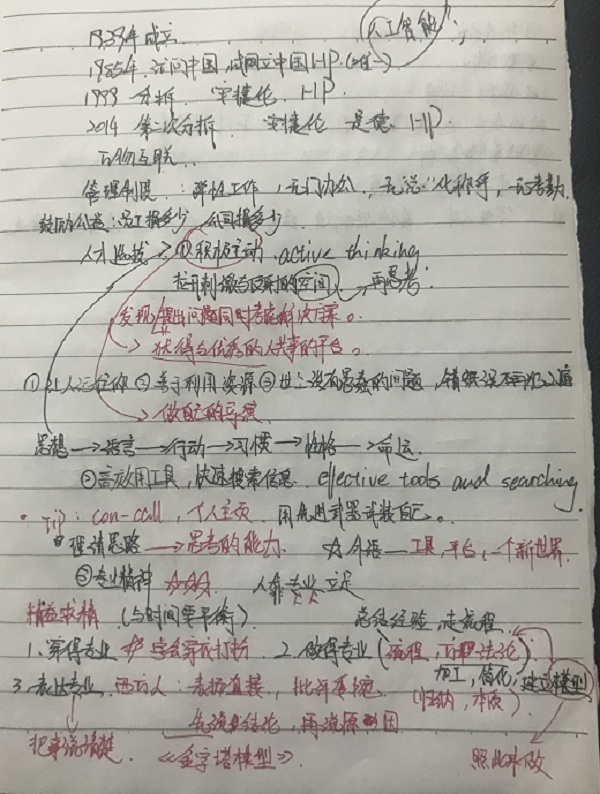 人工智能
1939年成立
1985年,访问中国,成立中国HP.
1999 分拆. 安捷伦、HP.
2014 第二次分拆. 安捷伦 是德、HP.
万物互联.
管理制度:弹性工作,无门办公,无 化称呼,无考勤.
鼓励公益:员工捐多少,公司捐多少.
人才 ①积极主动 active thinking
拉开刺激与反射的空间、再思考.
发现/提出问题同时考虑解决方案。
获得与优秀的人共事的平台。
② 善于利用资源 ③ 世上没有愚蠢的问题,
做自己的导演
思想→语言→行动→习惯→性格→命运.
②高效用工具,快速搜索信息. effective tools and searching.
Tip: con-call,个人主页 用先进武器武装自己。
理清思路→思考的能力. ☆外语—工具,平台,一个新世界.
③专业精神 ☆☆☆. 人靠专业立足
精益求精 (与时间要平衡). 总结经验,走流程.
1、穿得专业 学会穿衣打扮 2、做得专业(流程,方法论)
加工,简化,建立模型
3、表达专业. 西方人:表扬直接,批评 (归纳,本质)
先说结论,再说原因
把事说清楚. 《金字塔模型》. 照此来做